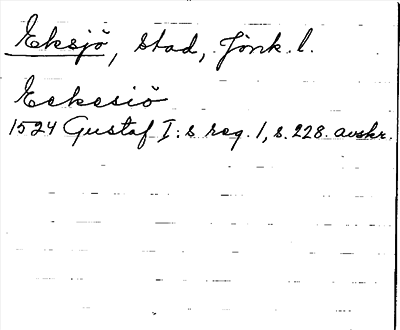 Eksjö, stad, Jönk. l.
Eekesiö
1524 Gustaf I:s reg. 1, s. 228. avskr.